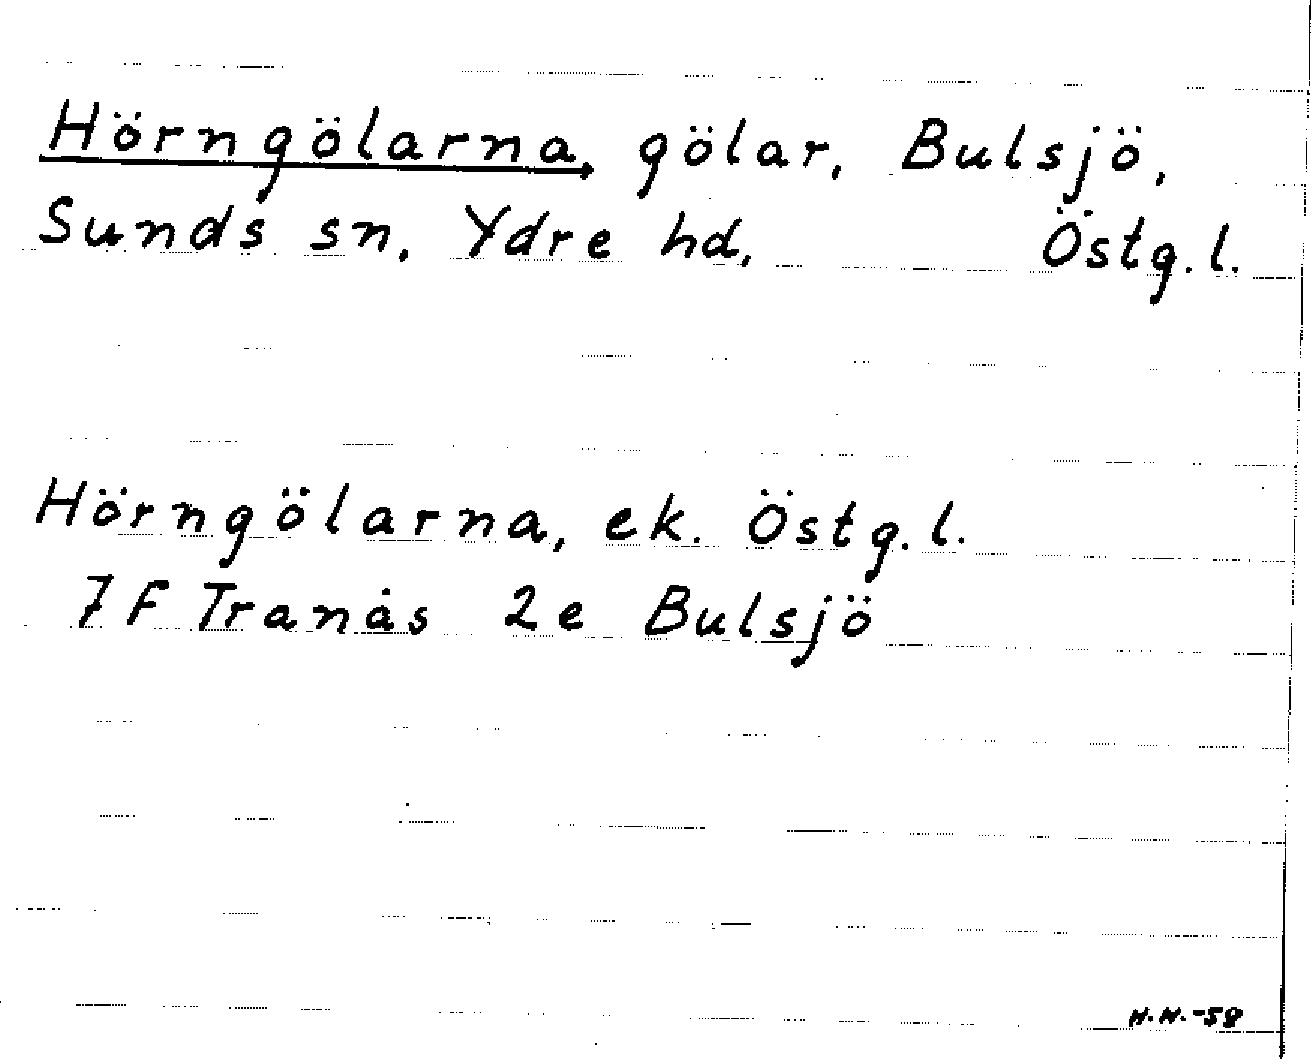 Hörngölarna, gölar, Bulsjö,
Sunds sn, Ydre hd, Östg. l.
Hörngölarna, ek. Östg. l.
7F Tranås 2e Bulsjö
H.H.-58